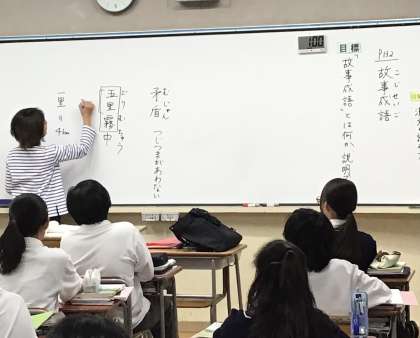 P112
こじせいご
故事成語
目標「故事成語」とは何か、説明
100
むじゅん
矛盾 つじつまがあわない
ごりむちゅう
五里霧中
一里=4km